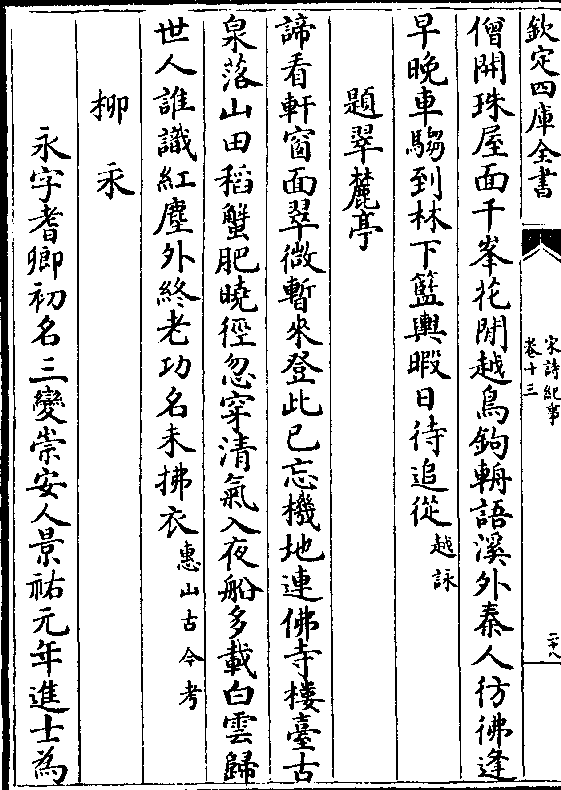 欽定四庫全書
宋詩紀事
卷十三
二十八
僧開珠屋面千峯花開越鳥鉤輈語溪外秦人彷彿逢
早晚車騶到林下籃輿暇日待追從越詠
題翠麓亭
諦看軒窗面翠微暫來登此已忘機地連佛寺樓臺古
泉落山田稻蟹肥曉徑忽穿清氣入夜船多載白雲歸
世人誰識紅塵外終老功名未拂衣惠山古今考
柳永
永字耆卿初名三變崇安人景祐元年進士為